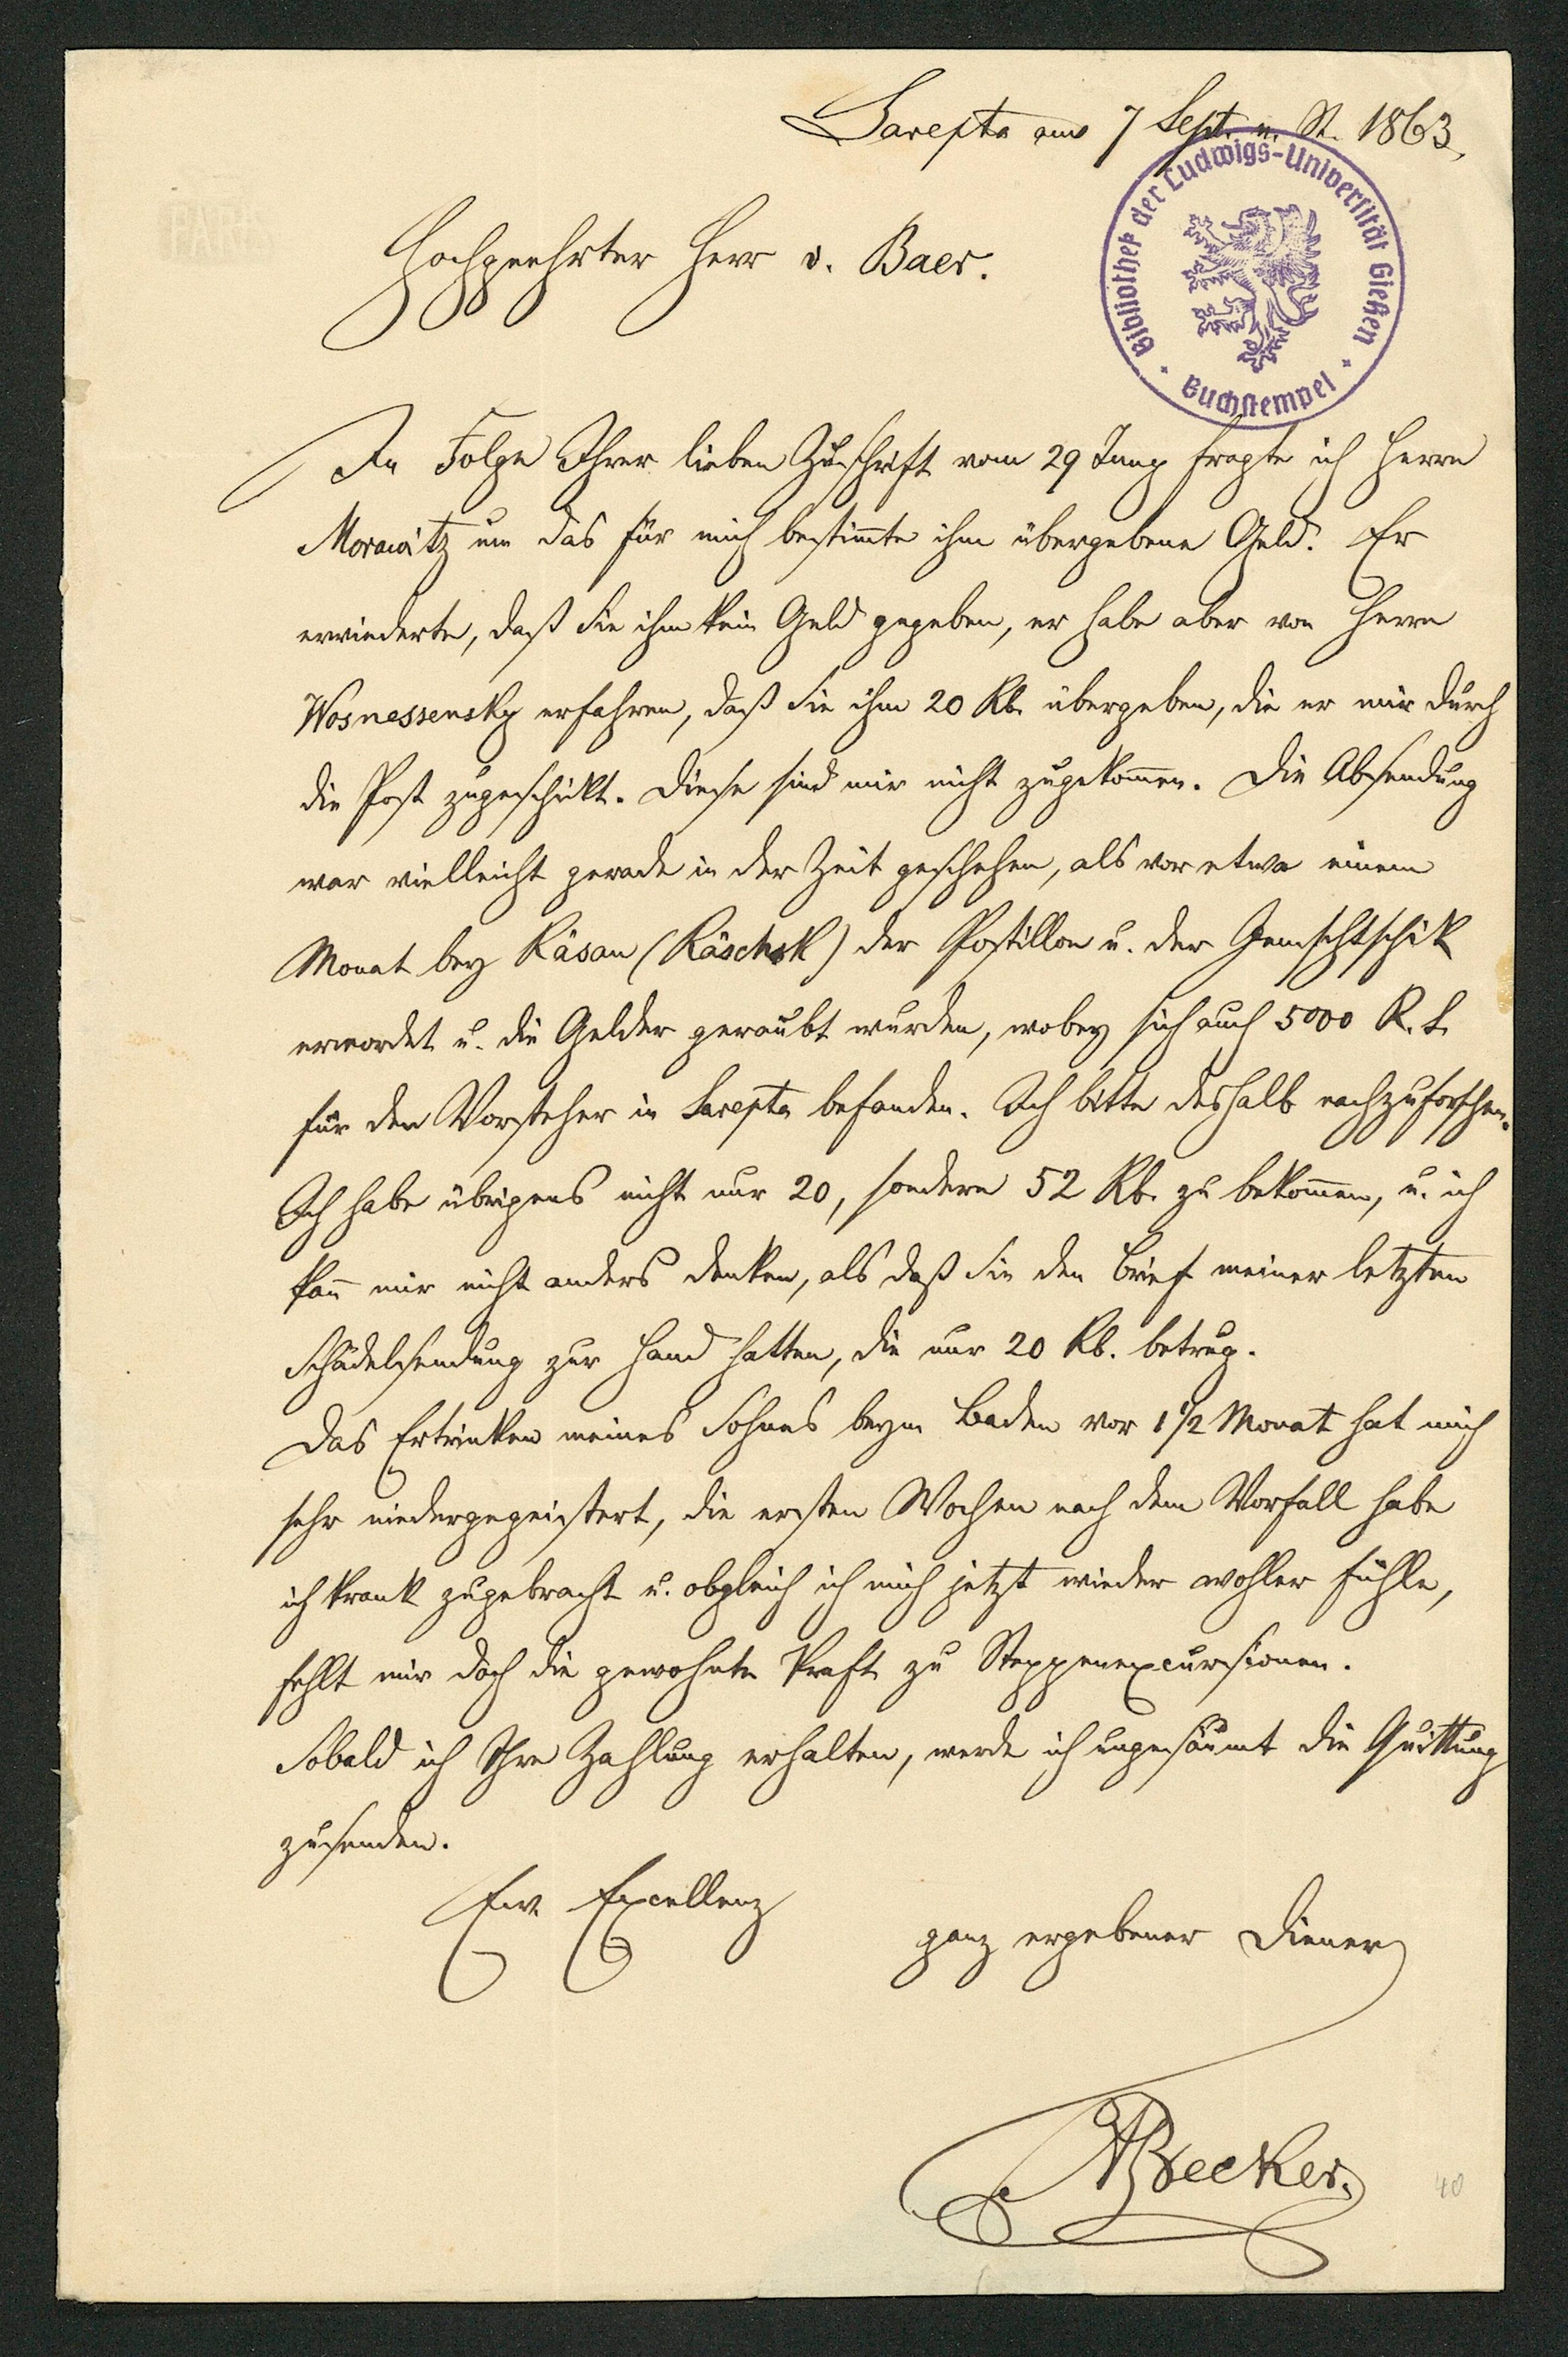 Sarepta am 7 Sept. n. St. 1863.
Bibliothek der Ludwigs-Universität Gießen
Buchstempel
Hochgeehrter Herr v. Baer.
In Folge Ihrer lieben Zuschrift vom 29 Juny fragte ich Herrn
Morawitz um das für mich bestim̄te ihm übergebene Geld. Er
erwiederte, daß Sie ihm kein Geld gegeben, er habe aber von Herrn
Wosnessensky erfahren, daß Sie ihm 20 Rb. übergeben, die er mir durch
die Post zugeschickt. Diese sind mir nicht zugekom̄en. Die Absendung
war vielleicht gerade in der Zeit geschehen, als vor etwa einem
Monat bey Räsan (Räschsk) der Postillon u. der Jemschtschik
ermordet u. die Gelder geraubt wurden, wobey sich auch 5000 R. S.
für den Vorsteher in Sarepta befanden. Ich bitte deshalb nachzuforschen.
Ich habe übrigens nicht nur 20, sondern 52 Rb. zu bekom̄en, u. ich
kan̄ mir nicht anders denken, als daß Sie den Brief meiner letzten
Schädelsendung zur Hand hatten, die nur 20 Rb. betrug.
Das Ertrinken meines Sohnes beym Baden vor 1 1/2 Monat hat mich
sehr niedergegeistert, die ersten Wochen nach dem Vorfall habe
ich krank zugebracht u. obgleich ich mich jetzt wieder wohler fühle,
fehlt mir doch die gewohnte Kraft zu Steppenexcursionen.
Sobald ich Ihre Zahlung erhalten, werde ich ungesäumt die Quittung
zusenden.
Ew. Excellenz
ganz ergebener Diener
ABecker.
40